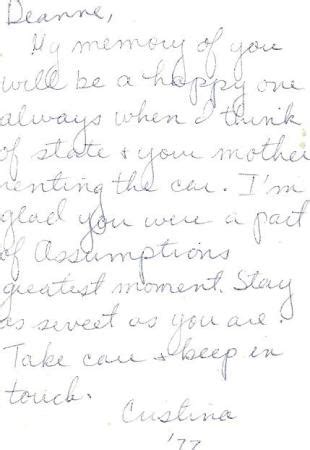 Deanne,
My memory of you
will be a happy one
always when I think
of state + your mother
renting the car. I'm
glad you were a part
of Assumptions
greatest moment. Stay
as sweet as you are.
Take care + keep in
touch.
Cristina
'77